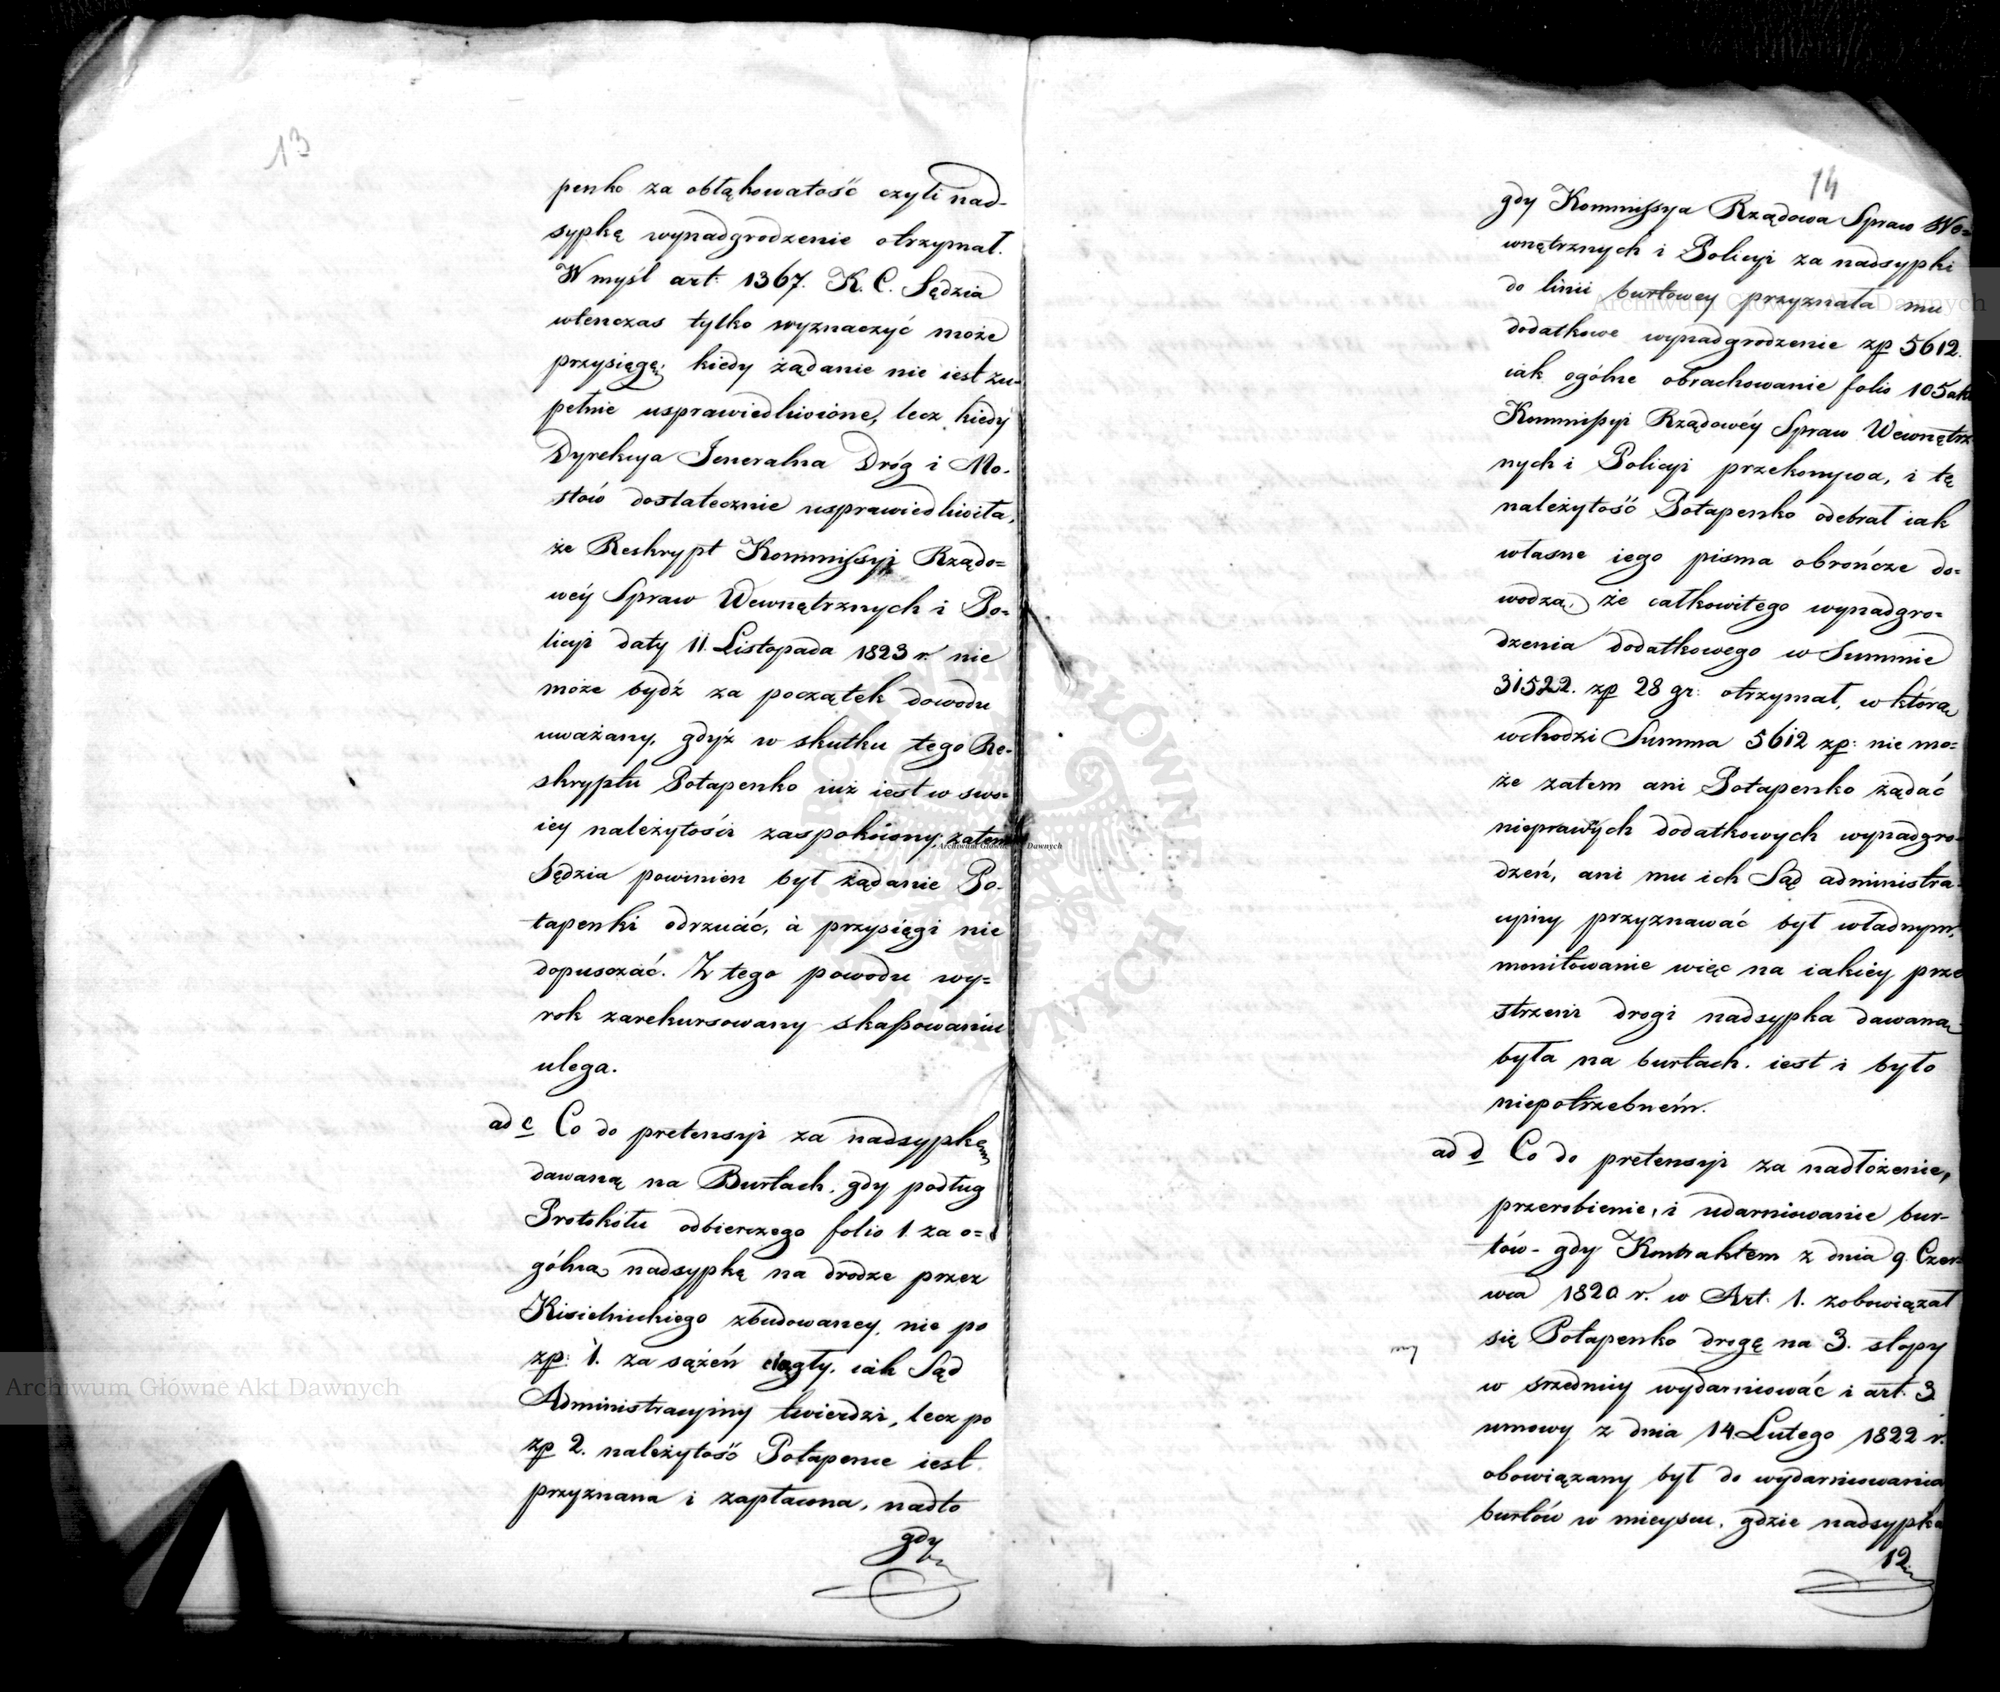 13
penko za obłąkowatość czyli nad-
sypkę wynadgrodzenie otrzymał.
W myśl art. 1367. K. C. Sędzia
wtenczas tylko wyznaczyć może
przysięgę, kiedy żądanie nie iest zu-
pełnie usprawiedliwione, lecz kiedy
Dyrekcya Jeneralna Dróg i Mo-
stów dostatecznie usprawiedliwiła,
że Reskrypt Kommissyi Rządo=
wéy Spraw Wewnętrznych i Po=
licyi daty 11 Listopada 1823 r. nie
może bydź za początek dowodu
uważany, gdyż w skutku tego Re-
skryptu Potapenko iuż iest w swo-
iey należytości zaspokoiony, zatem
Sędzia powinien był żądanie Po-
tapenki odrzucić, à przysięgi nie
dopuszczać. Z tego powodu wy=
rok zarekursowany skassowaniu
ulega.
ad c Co do pretensyi za nadsypkę
dawaną na Burtach, gdy podług
Protokółu odbierczego folio 1. za o=
gólną nadsypkę na drodze przez
Kisielnickiego zbudowaney, nie po
zp: 1. za sążeń ciągły, iak Sąd
Administracyiny twierdzi, lecz po
zp 2. należytość Potapence iest
przyznana i zapłacona, nadto
gdy
14
gdy Kommissya Rządowa Spraw We=
wnętrznych i Policyi za nadsypki
do linii burtowey przyznała mu
dodatkowe wynadgrodzenie zp 5612.
iak ogólne obrachowanie folio 105 akt
Kommissyi Rządowéy Spraw Wewnętrz
nych i Policyi przekonywa, i tę
należytość Potapenko odebrał iak
własne iego pisma obrończe do=
wodzą, że całkowitego wynadgro=
dzenia dodatkowego w Summie
31522. zp 28 gr: otrzymał, w którą
wchodzi Summa 5612 zp: nie mo=
że zatem ani Potapenko żądać
nieprawych dodatkowych wynadgro-
dzeń, ani mu ich Sąd administra-
cyiny przyznawać był władnym,
monitowanie więc na iakiéy prze
strzeni drogi nadsypka dawana
była na burtach. iest i było
niepotrzebném.
ad d Co do pretensyi za nadłożenie,
przerobienie, i udarniowanie bur-
tów - gdy Kontraktem z dnia 9. Czer=
wca 1820 r. w Art. 1. zobowiązał
się Potapenko drogę na 3. stopy
w srzedniy wydarniować i art. 3
umowy z dnia 14 Lutego 1822 r.
obowiązany był do wydarniowania
burtów w mieyscu, gdzie nadsypka
12
Archiwum Główne Akt Dawnych
Archiwum Główne Akt Dawnych
Archiwum Główne Akt Dawnych